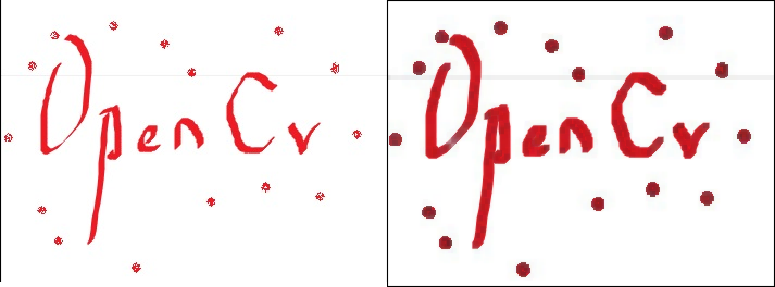 OpenCv
OpenCv